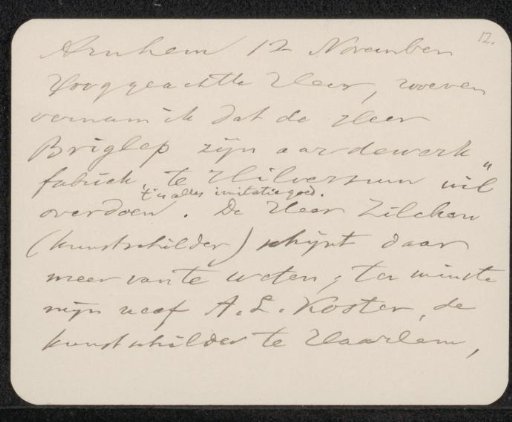 12.
Arnhem 12 November
Hooggeachte Heer, zoeven
vernam ik dat de Heer
Briglep zijn aardewerk
fabriek te Hilversum wil
't is alles imitatiegoed.
overdoen. De Heer Zilcken
(kunstschilder) schijnt daar
meer van te weten; ten minste
mijn neef A. L. Koster, de
kunstschilder te Haarlem,